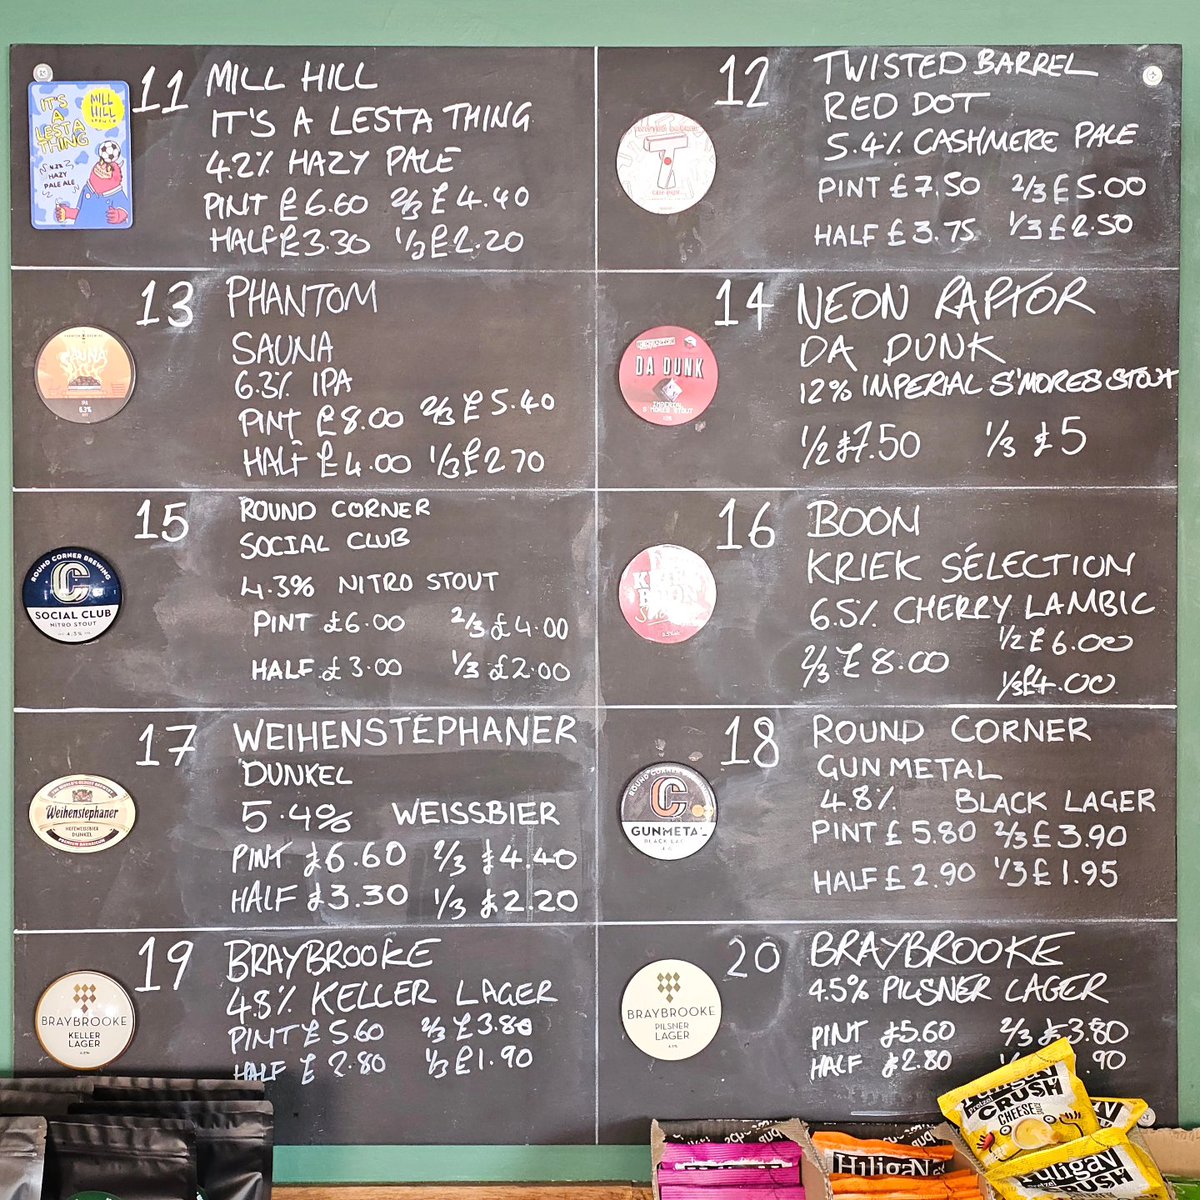 11 MILL HILL
IT'S A LESTA THING
4.2% HAZY PALE
PINT £6.60 2/3 £4.40
HALF £3.30 1/3 £2.20
IT'S
A
LESTA
THING
MILL
HILL
4.2%
HAZY
PALE ALE
12 TWISTED BARREL
RED DOT
5.4% CASHMERE PALE
PINT £7.50 2/3 £5.00
HALF £3.75 1/3 £2.50
13 PHANTOM
SAUNA
6.3% IPA
PINT £8.00 2/3 £5.40
HALF £4.00 1/3 £2.70
SAUNA
IPA
6.3%
14 NEON RAPTOR
DA DUNK
12% IMPERIAL S'MORES STOUT
1/2 £7.50 1/3 £5
DA DUNK
IMPERIAL
S'MORES STOUT
15 ROUND CORNER
SOCIAL CLUB
4.3% NITRO STOUT
PINT £6.00 2/3 £4.00
HALF £3.00 1/3 £2.00
ROUND CORNER BREWING
SOCIAL CLUB
NITRO STOUT
4.3%
16 BOON
KRIEK SÉLECTION
6.5% CHERRY LAMBIC
1/2 £6.00
2/3 £8.00
1/3 £4.00
17 WEIHENSTEPHANER
DUNKEL
5.4% WEISSBIER
PINT £6.60 2/3 £4.40
HALF £3.30 1/3 £2.20
Weihenstephaner
HEFEWEISSBIER
DUNKEL
PREMIUM BAVARICUM
18 ROUND CORNER
GUNMETAL
4.8% BLACK LAGER
PINT £5.80 2/3 £3.90
HALF £2.90 1/3 £1.95
ROUND CORNER
GUNMETAL
BLACK LAGER
19 BRAYBROOKE
4.8% KELLER LAGER
PINT £5.60 2/3 £3.80
HALF £2.80 1/3 £1.90
BRAYBROOKE
KELLER
LAGER
4.8%
20 BRAYBROOKE
4.5% PILSNER LAGER
PINT £5.60 2/3 £3.80
HALF £2.80 .90
BRAYBROOKE
PILSNER
LAGER
Pretzel
CRUSH
CHEESE
HUligaN
HUligaN
Pretzel CRUSH